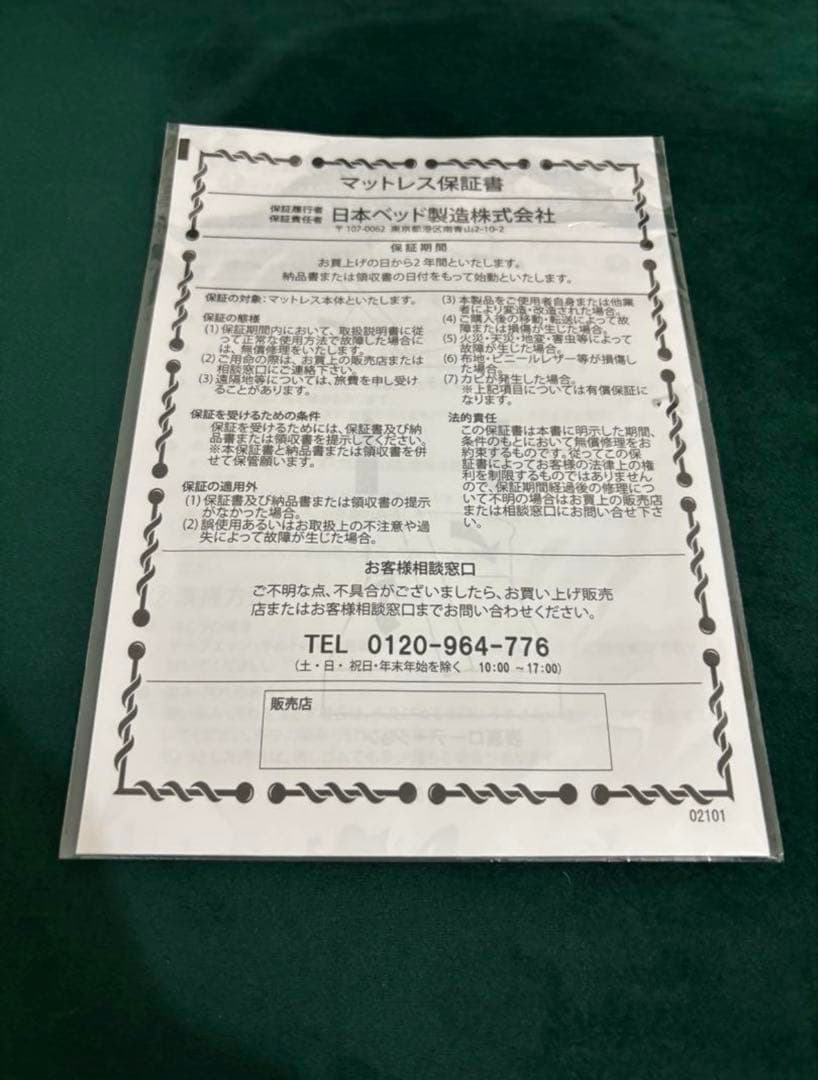 マットレス保証書
保証履行者
保証責任者
日本ベッド製造株式会社
〒107-0062 東京都港区南青山2-10-2
保証期間
お買上げの日から2年間といたします。
納品書または領収書の日付をもって始動といたします。
保証の対象:マットレス本体といたします。
保証の態様
(1)保証期間内において、取扱説明書に従
って正常な使用方法で故障した場合に
は、無償修理をいたします。
(2)ご用命の際は、お買上の販売店または
相談窓口にご連絡下さい。
(3)遠隔地等については、旅費を申し受け
ることがあります。
保証を受けるための条件
保証を受けるためには、保証書及び納
品書または領収書を提示してください。
※本保証書と納品書または領収書を併
せて保管願います。
保証の適用外
(1)保証書及び納品書または領収書の提示
がなかった場合。
(2)誤使用あるいはお取扱上の不注意や過
失によって故障が生じた場合。
(3)本製品をご使用者自身または他業
者により変造・改造された場合。
(4)ご購入後の移動・転送によって故
障または損傷が生じた場合。
(5)火災・天災・地変・害虫等によって
故障が生じた場合。
(6)布地・ビニールレザー等が損傷し
た場合。
(7)カビが発生した場合。
※上記項目については有償保証に
なります。
法的責任
この保証書は本書に明示した期間、
条件のもとにおいて無償修理をお
約束するものです。従ってこの保
証書によってお客様の法律上の権
利を制限するものではありません
ので、保証期間経過後の修理につ
いて不明の場合はお買上の販売店
または相談窓口にお問い合せ下さ
い。
お客様相談窓口
ご不明な点、不具合がございましたら、お買い上げ販売
店またはお客様相談窓口までお問い合わせください。
TEL 0120-964-776
(土・日・祝日・年末年始を除く 10:00 ~17:00)
販売店
02101